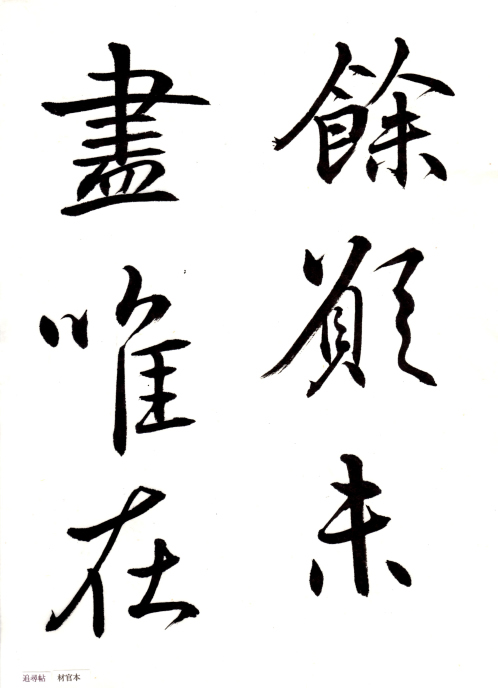 餘願未
盡唯在
追尋帖 材官本